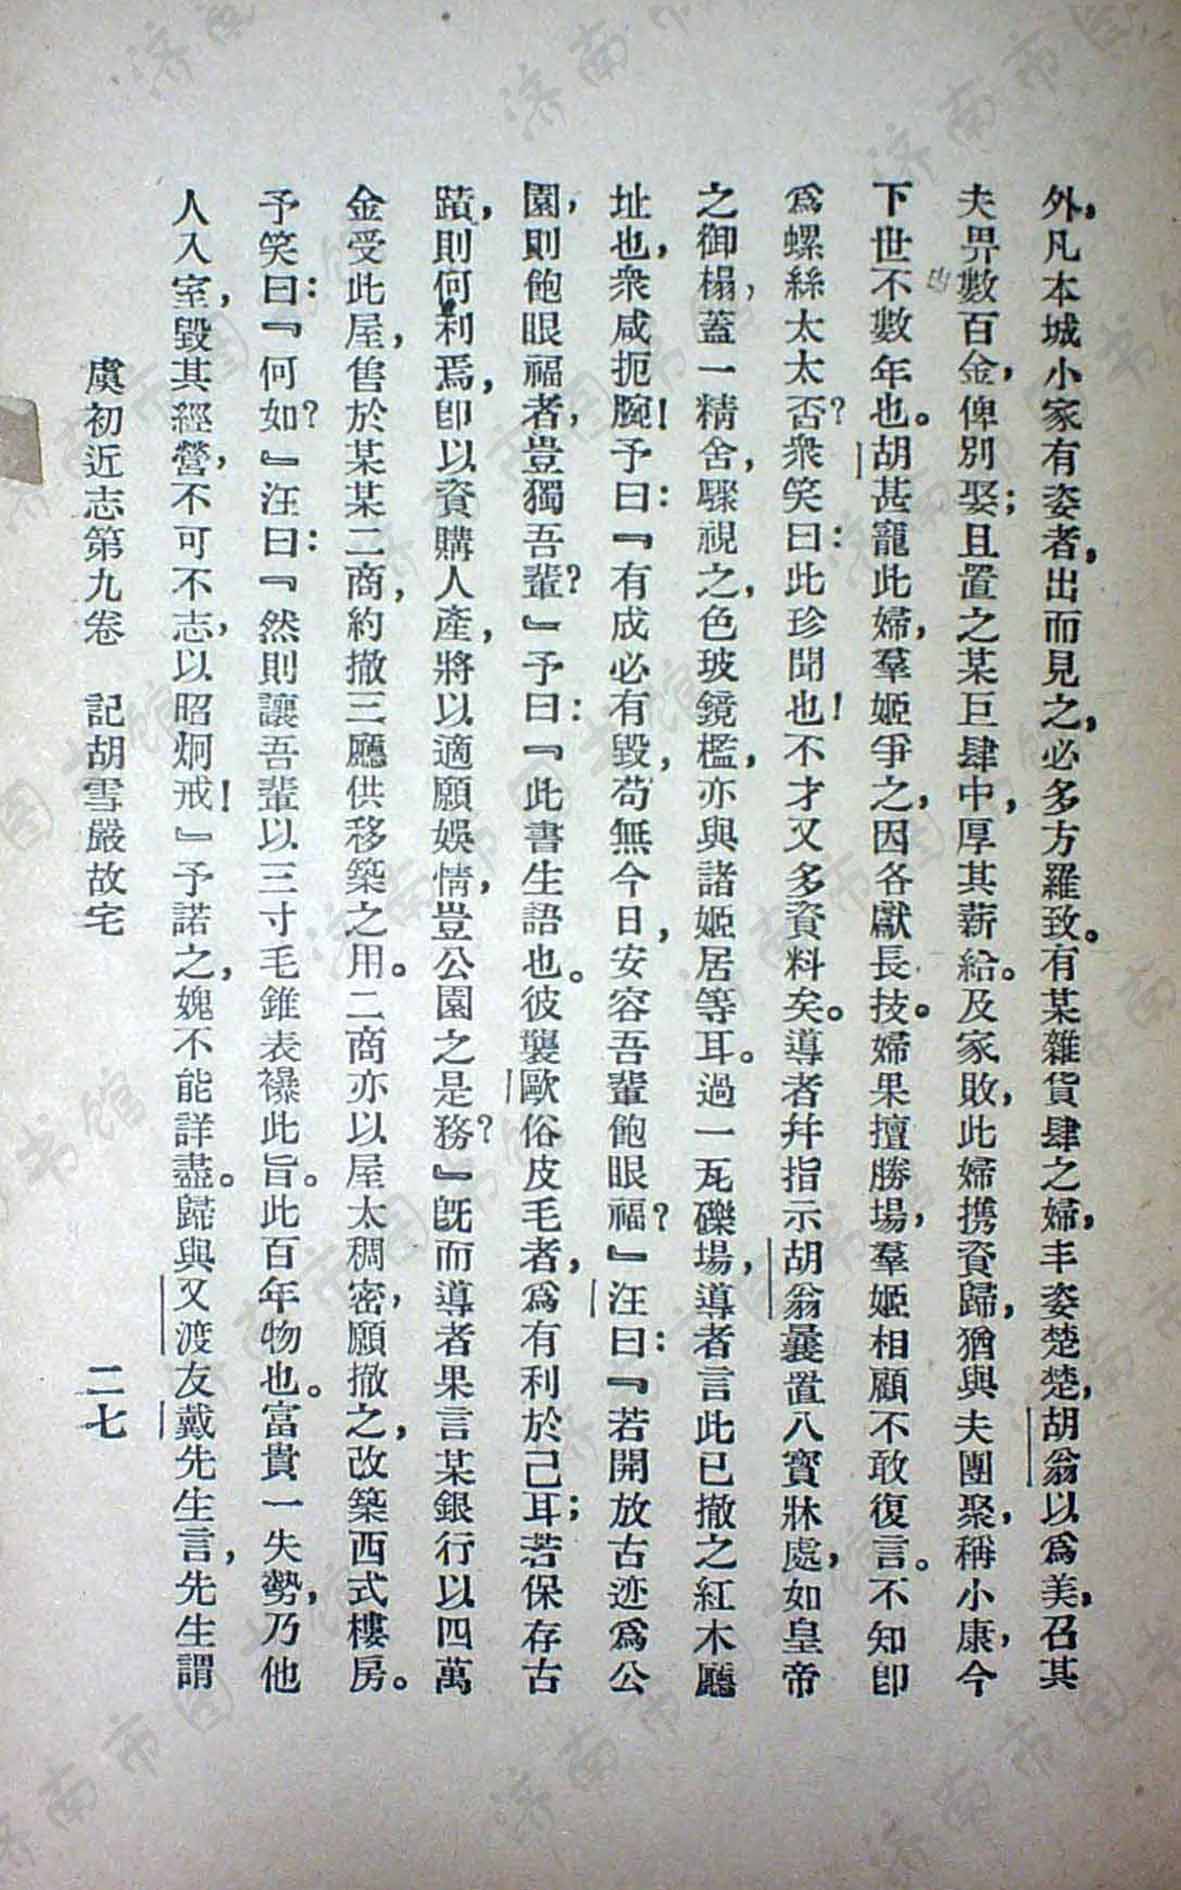 外，凡本城小家有姿者，出而見之，必多方羅致。有某雜貨肆之婦，丰姿楚楚，胡翁以爲美，召其
夫畀數百金，俾別娶；且置之某巨肆中，厚其薪給。及家敗，此婦携資歸，猶與夫團聚，稱小康，今
下世不數年也。胡甚寵此婦，羣姬爭之，因各獻長技。婦果擅勝場，羣姬相顧不敢復言。不知卽
爲螺絲太太否？衆笑曰：此珍聞也！不才又多資料矣。導者幷指示胡翁曩置八寳牀處，如皇帝
之御榻，蓋一精舍，驟視之，色玻鏡檻，亦與諸姬居等耳。過一瓦礫場，導者言此已撤之紅木廳
址也，衆咸扼腕！予曰：『有成必有毀，苟無今日，安容吾輩飽眼福？』汪曰：『若開放古迹爲公
園，則飽眼福者，豈獨吾輩？』予曰：『此書生語也。彼襲歐俗皮毛者，爲有利於己耳；若保存古
蹟，則何利焉，卽以資購人產，將以適願娛情，豈公園之是務？』旣而導者果言某銀行以四萬
金受此屋，售於某某二商，約撤三廳供移築之用。二商亦以屋太稠密，願撤之，改築西式樓房。
予笑曰：『何如？』汪曰：『然則讓吾輩以三寸毛錐表襮此旨。此百年物也。富貴一失勢，乃他
人入室，毀其經營，不可不志，以昭炯戒！』予諾之，媿不能詳盡。歸與又渡友戴先生言，先生謂
虞初近志第九卷　記胡雪巖故宅　二七
济南市图书馆